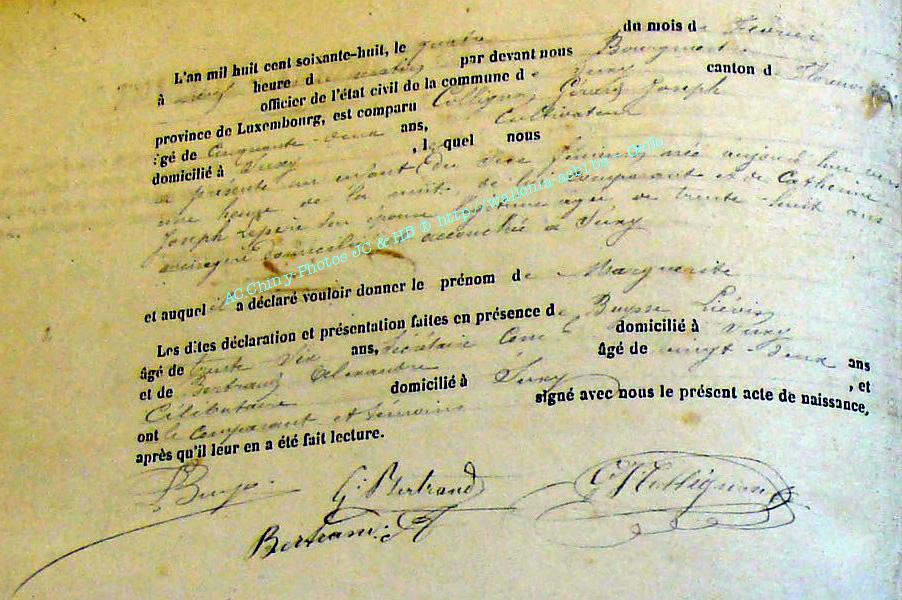 L'an mil huit cent soixante-huit, le quatre du mois de Février
à neuf heure d par devant nous Bourgmestre
officier de l'état civil de la commune de Suxy canton d Florenville
province de Luxembourg, est comparu Collignon Joseph
âgé de Cinquante-deux ans, Cultivateur
domicilié à Suxy , l quel nous
a présenté un enfant du sexe féminin, née aujourd'hui vers
une heure de la nuit de lui comparant et de Catherine
Joseph son épouse âgée de trente-huit ans
domiciliée accouchée à Suxy
et auquel il a déclaré vouloir donner le prénom de Marguerite
Les dites déclaration et présentation faites en présence de Buysse Liévin
âgé de trente six ans, secrétaire Com domicilié à Suxy
et de Bertrand Alexandre âgé de vingt-deux ans
Célibataire domicilié à Suxy , et
ont le comparant et témoins signé avec nous le présent acte de naissance,
après qu'il leur en a été fait lecture.
AC Chiny Photos JC & HB © http://wallonia-asbl.be
G. Bertrand
Bertrand A
Collignon